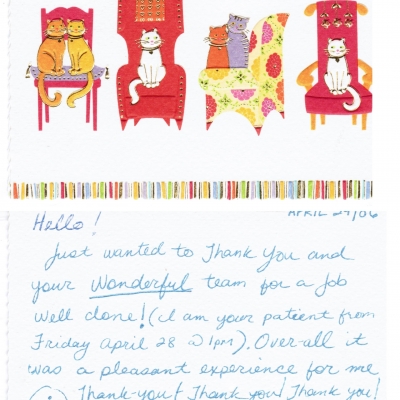 APRIL 29/06
Hello!
Just wanted to Thank You and
your Wonderful team for a job
well done! (I am your patient from
Friday April 28 @ 1pm). Over-all it
was a pleasant experience for me
Thank-you! Thank you! Thank you!